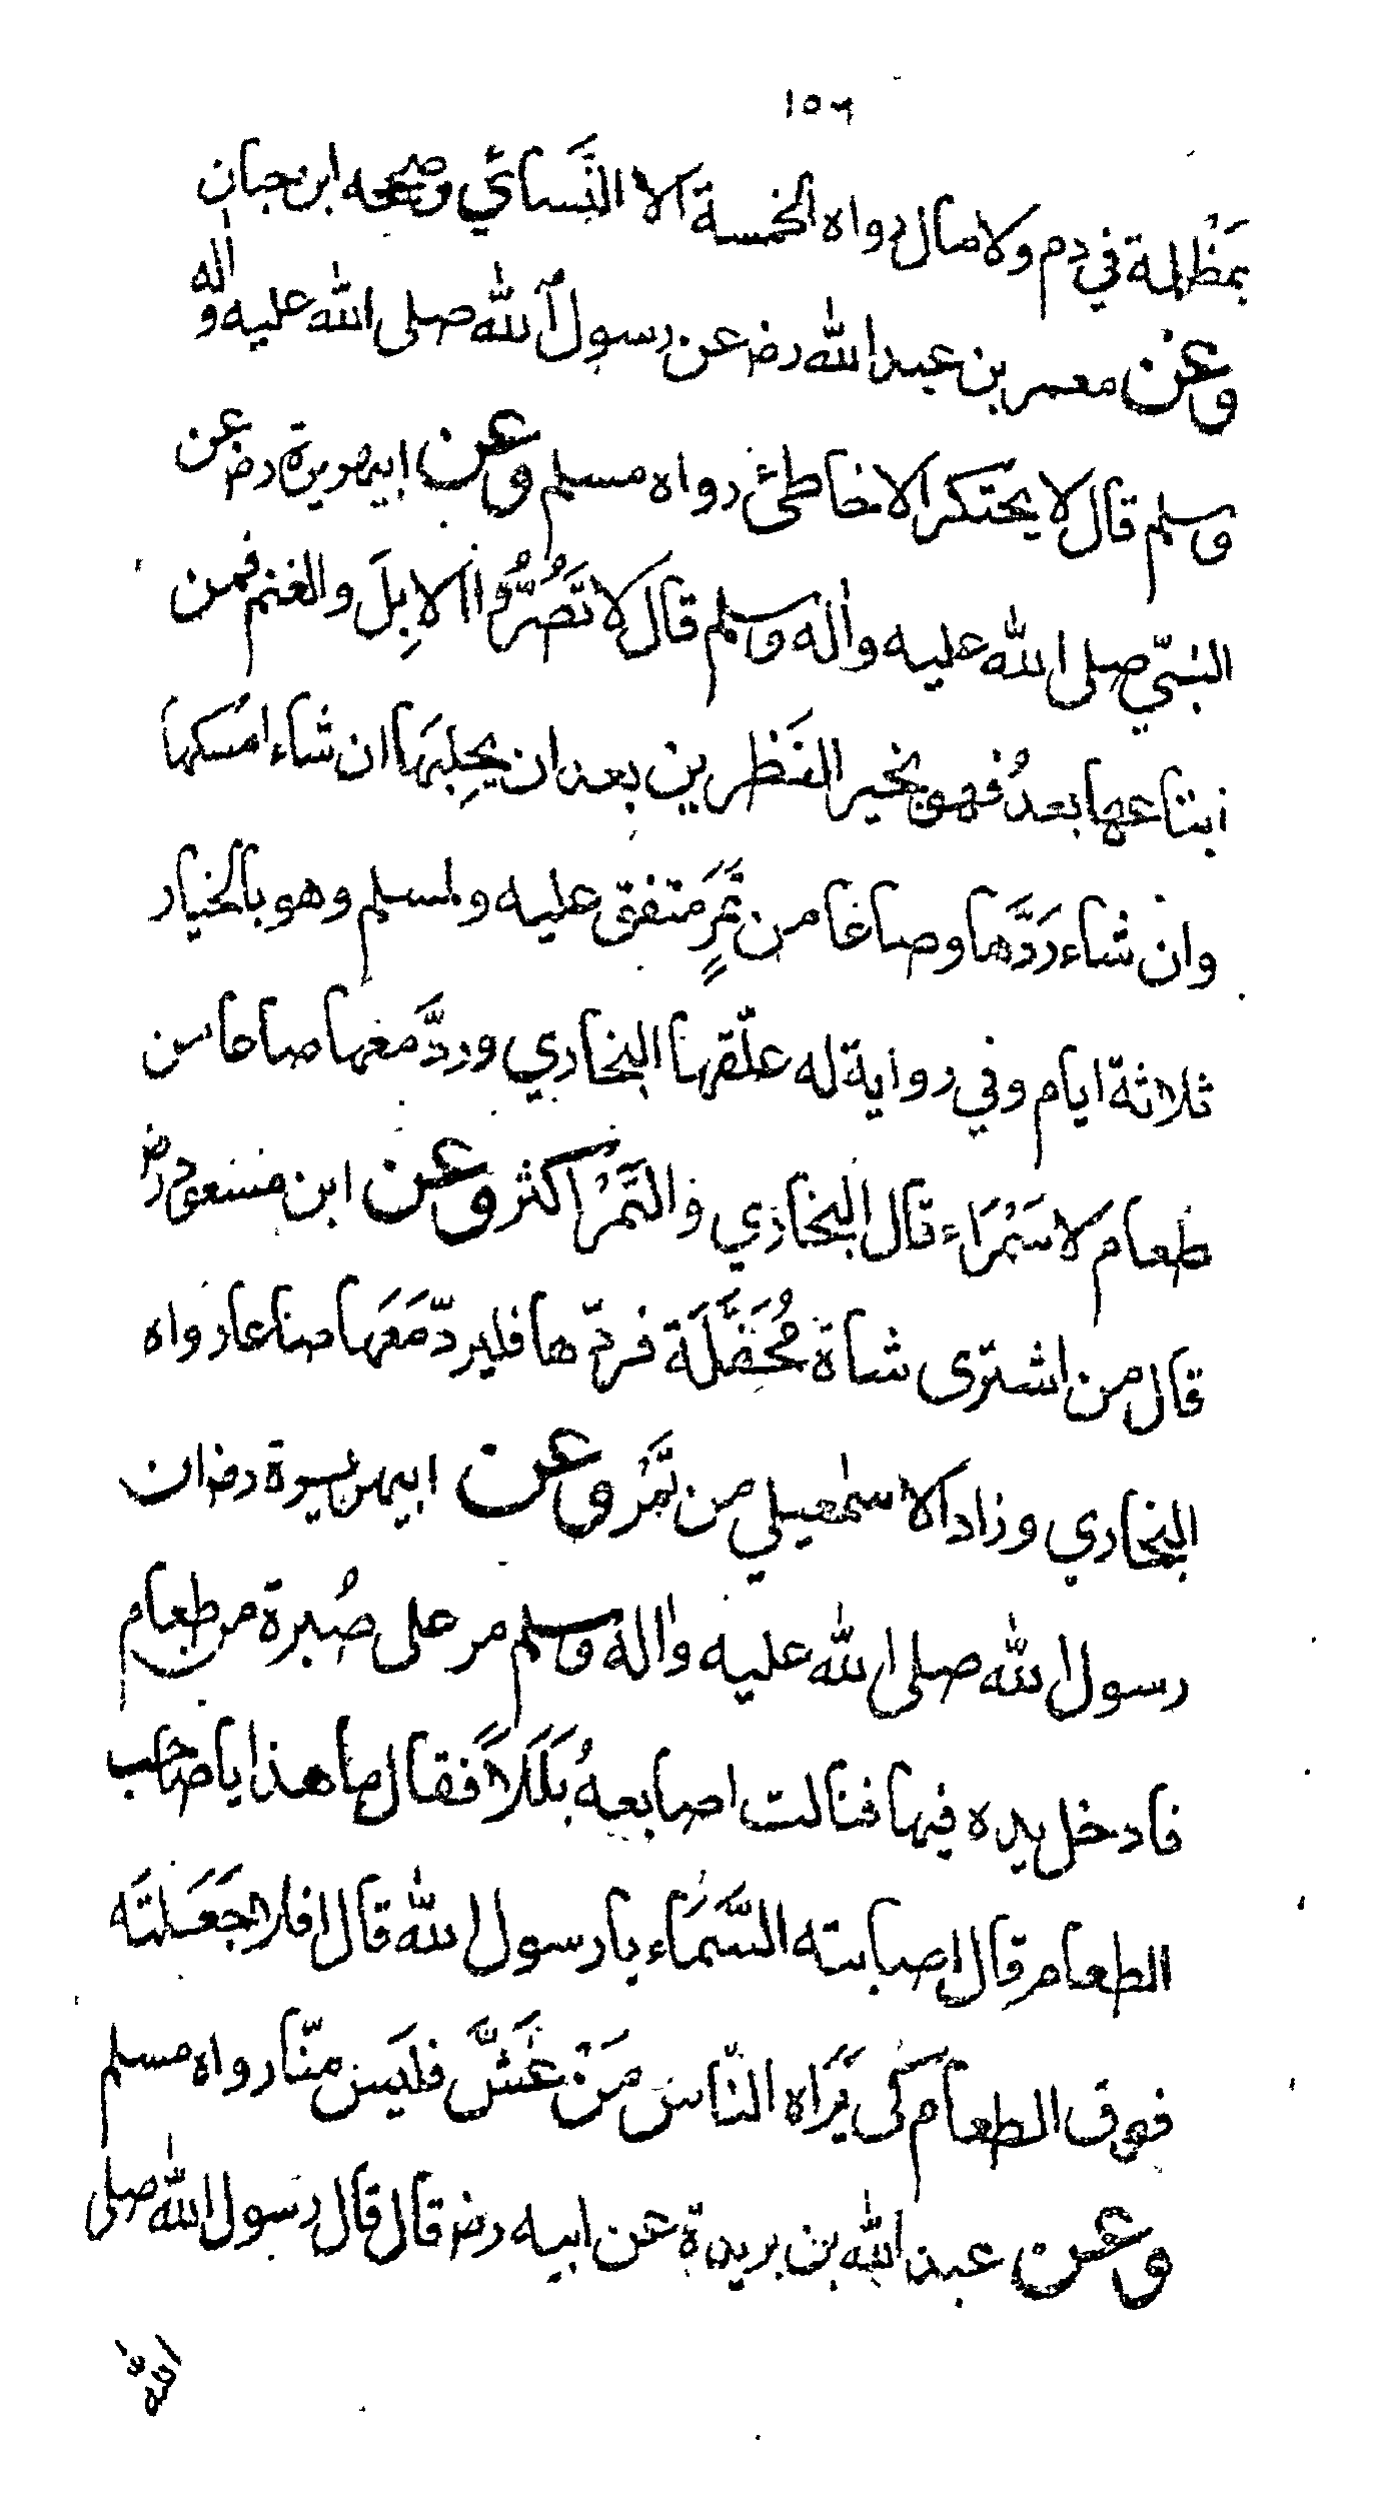 ١٥٦
بمَظْلمة في دم ولا مال رواه الخمسة الا النَّسائي وصححه ابن حبان
وعن معمر بن عبدالله رضـ عن رسول الله صلى الله عليه واله
وسلم قال لا يحتكر الا خاطئ رواه مسلم وعن ابيهريرة رضـ عن
النبيّ صلى الله عليه واله وسلم قال لا تَصُرُّوا الابِلَ والغنم فمن
ابتاعها بعدُ فهو بخير النَظرين بعد ان يحلِبَها ان شاء امسكها
وان شاء رَدَّها وصاعا من تَمَرٍ متفق عليه ولمسلم وهو بالخيار
ثلاثة ايام وفي رواية له علّقها البخاري وردَّ معها صاعا من
طعام لا سَمْرَاء قال البخاري والتَّمْرُ اكثر وعن ابن مسعود رضـ
قال من اشترى شاة مُحَفَّلَة فردّها فليردّ مَعَها صاعا رواه
البخاري وزاد الاسمٰعيلي من تَمْر وعن ابيهريرة رضـ ان
رسول الله صلى الله عليه واله وسلم مر على صُبرة من طعام
فادخل يده فيها فنالت اصابعهُ بَلَلاً فقال ما هذا يا صاحب
الطعام قال اصابته السَّمَاء يا رسول الله قال افلا جَعَلتَه
فوق الطعام كَى يَرَاه النّاس مَنْ غَشَّ فليَس منّا رواه مسلم
وعن عبد الله بن بريدة عن ابيه رضـ قال قال رسول الله صلى